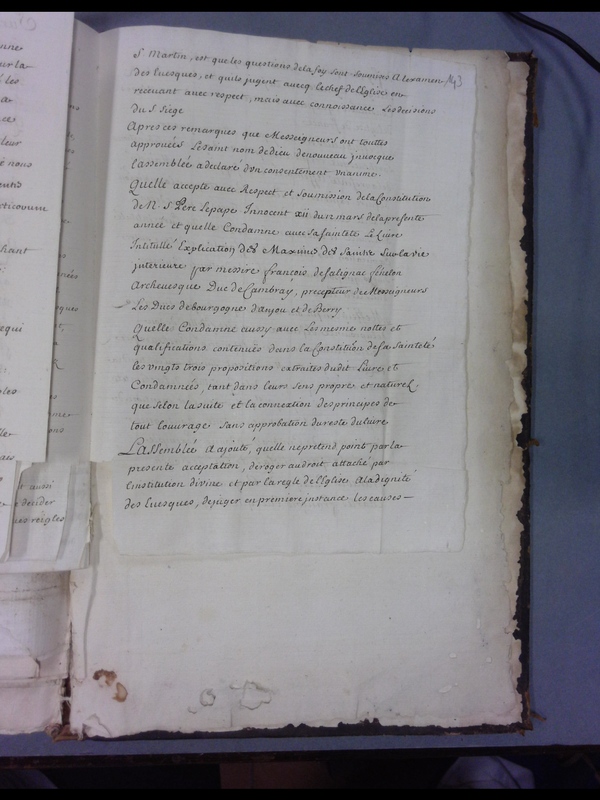 S Martin, est que les questions de la foy sont soumises a lexamen
des Evesques, et quils jugent avecq le chef de l'Eglise en
recevant avec respect, mais avec connoissance les decisions
du S. Siege
Apres ces remarques que Messeigneurs ont touttes
approuvés Le saint nom de dieu de nouveau invoqué
L'assemblée a declaré d'un consentement unanime.
Quelle accepte avec Respect et soumission de la Constitution
de N. S Pere Le pape Innocent xii du 12 mars de la presente
année et quelle Condamne avec sa sainteté Le Livre
Intitullé Explication des Maximes des Saints sur la vie
interieure par messire françois de salignac fenelon
Archevesque Duc de Cambray, precepteur de Messeigneurs
Les Ducs de bourgogne danjou et de Berry
Quelle Condamne aussy avec Les mesme nottes et
qualifications contenües dans la Constitution de sa Sainteté
les vingts trois propositions extraittes dudit Livre et
Condamnées, tant dans leurs sens propre et naturel
que selon la suite et la connextion des principes de
tout Louvrage sans approbation du reste du livre
L'Assemblée a ajouté, quelle ne pretend point par la
presente acceptation, deroger au droit attaché par
Linstitution divine et par la regle de l'Eglise a la dignité
des Evesques, de juger en premiere instance les causes
nne
sur la
les
a
leur
é nons
cticorum
hant
requi
t aussi
decider
ues reigles